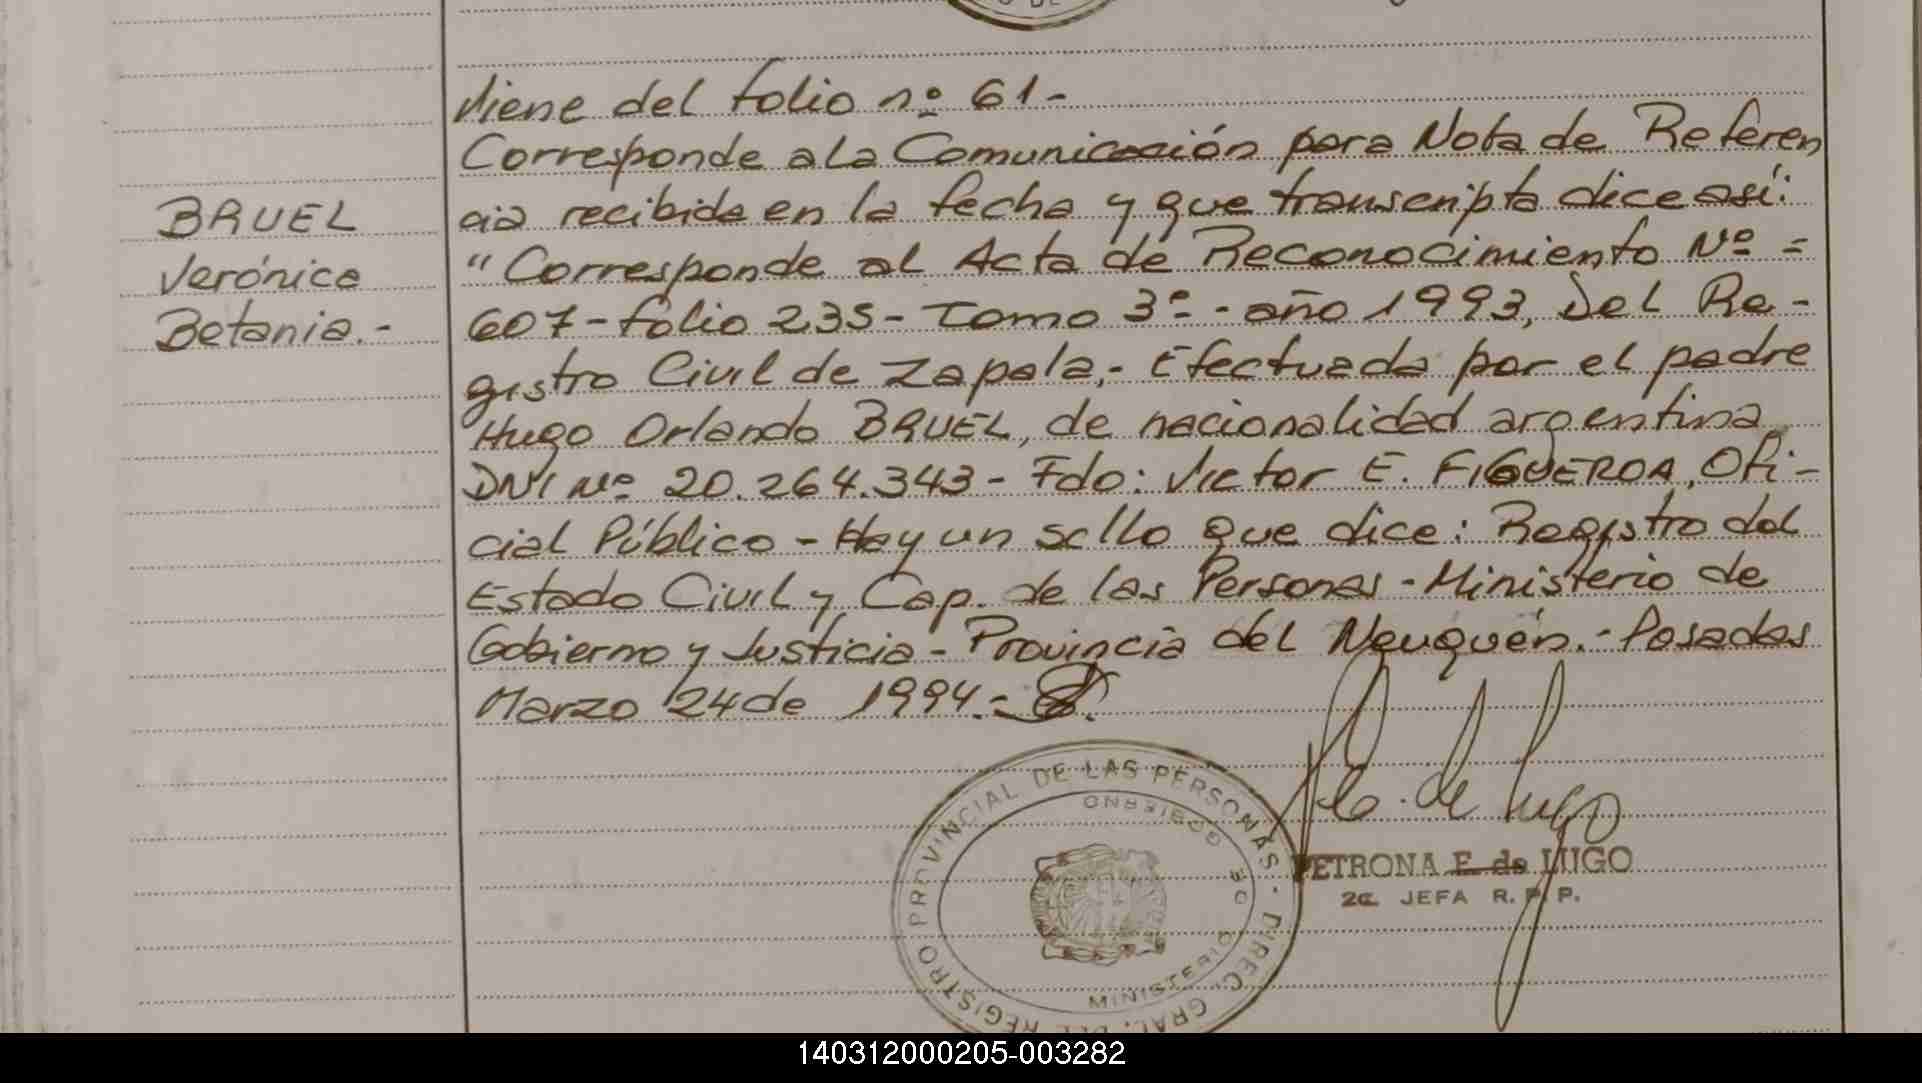 Viene del folio nº 61-
Corresponde a la Comunicación para Nota de Referen
cia recibida en la fecha y que transcripta dice así:
BRUEL
Verónica
Betania.-
"Corresponde al Acta de Reconocimiento Nº =
607-folio 235- Tomo 3º- año 1993, Del Re-
gistro Civil de Zapala,- Efectuada por el padre
Hugo Orlando BRUEL, de nacionalidad argentina
DNI Nº 20.264.343- Fdo: Victor E. FIGUEROA, Ofi-
cial Público - Hay un sello que dice: Registro del
Estado Civil y Cap. de las Personas - Ministerio de
Gobierno y Justicia - Provincia del Neuquén.- Posadas
Marzo 24 de 1994.-
DIREC. GRAL. DEL REGISTRO PROVINCIAL DE LAS PERSONAS -
MINISTERIO DE GOBIERNO
de Lugo
PETRONA E. de LUGO
2a. JEFA R. P. P.
140312000205-003282